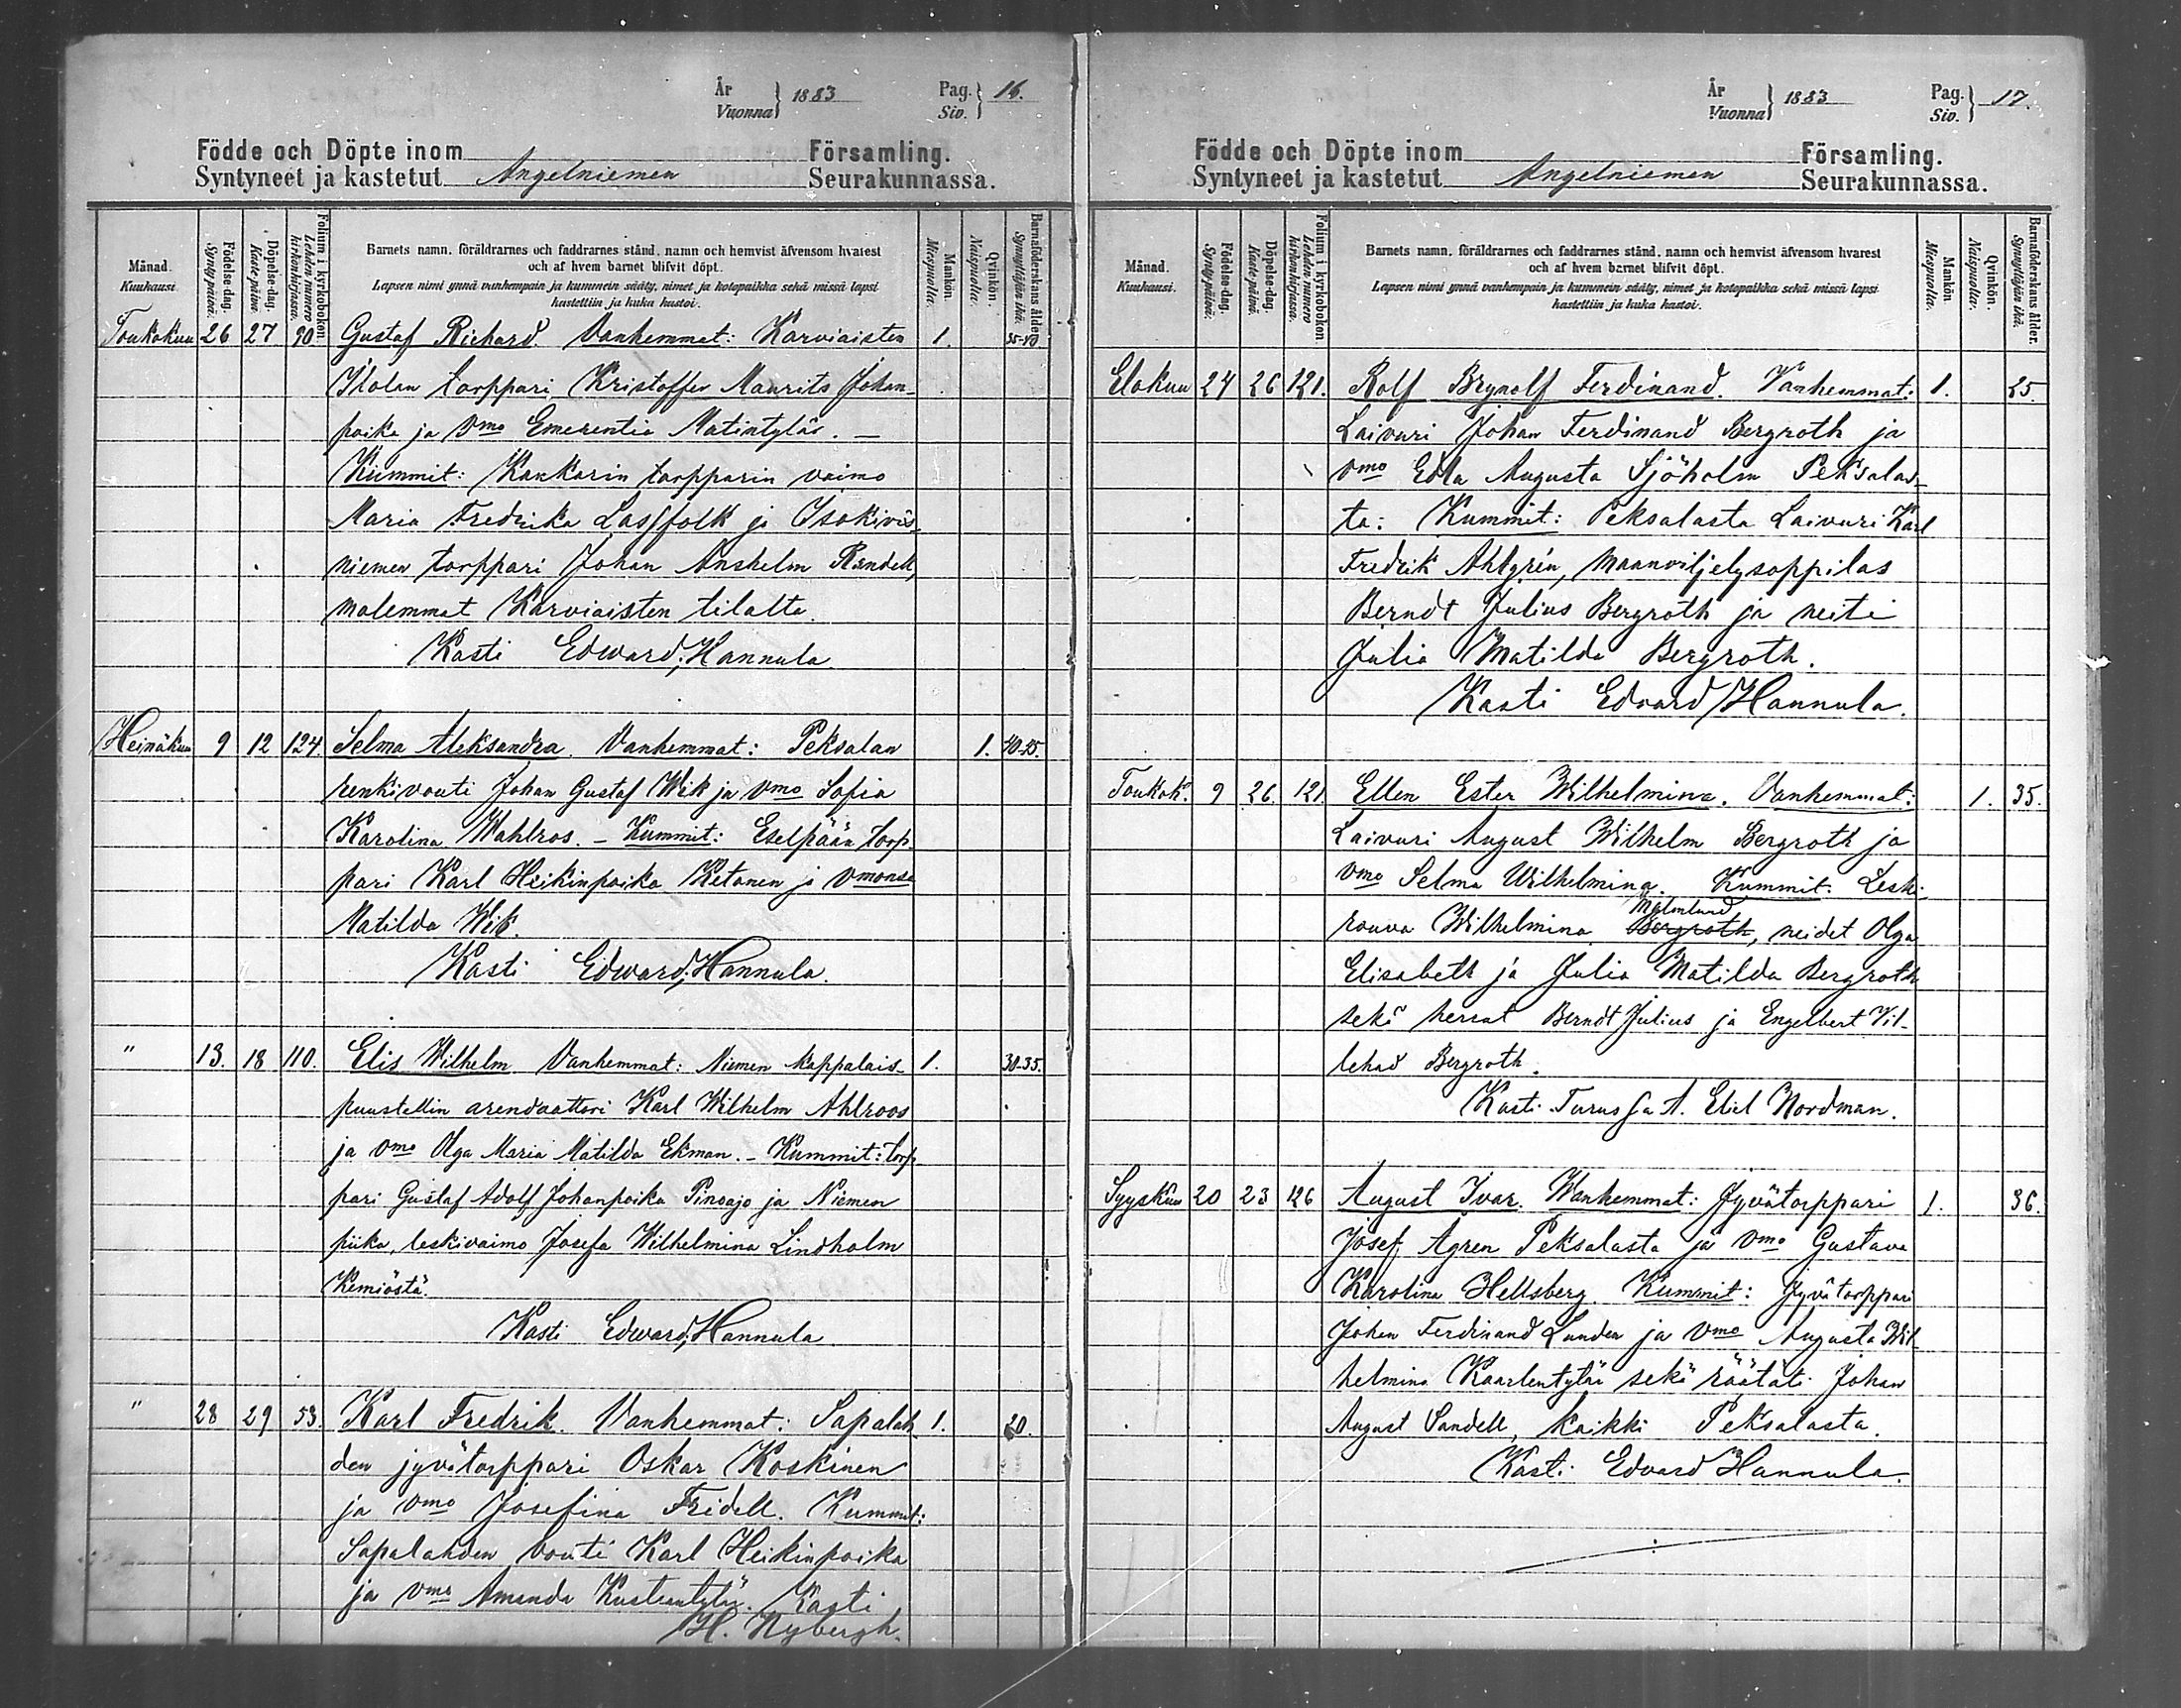 År
Vuonna } 1883
Pag.
Siv. } 16.
Födde och Döpte inom Församling.
Syntyneet ja kastetut Angelniemen Seurakunnassa.
Månad.
Kuukausi.
Födelse-dag.
Syntypäivä.
Döpelse-dag.
Kastepäivä.
Folium i kyrkobokon.
Lehden numero kirkonkirjassa.
Barnets namn, föräldrarnes och faddrarnes stånd, namn och hemvist äfvensom hvarest
och af hvem barnet blifvit döpt.
Lapsen nimi ynnä vanhempain ja kummein sääty, nimet ja kotopaikka sekä missä lapsi
kastettiin ja kuka kastoi.
Mankön.
Miespuolia.
Qvinkön.
Naispuolia.
Barnaföderskans ålder.
Synnyttäjän ikä.
Toukokuu 26 27 90 Gustaf Richard. Vanhemmat: Karviaisten 1. 35-40
Itolan torppari Kristoffer Maurits Johan-
poika ja vmo Emerentia Matintytär. —
Kummit: Kakkarin torpparin vaimo
Maria Fredrika Lassfolk ja Isokivis-
niemen torppari Johan Anshelm Randell,
molemmat Karviaisten tilalta.
Kasti Edward Hannula
Heinäkuu 9 12 124. Selma Aleksandra. Vanhemmat: Peksalan 1. 40-45.
renkivouti Johan Gustaf Wik ja vmo Sofia
Karolina Wahlros. — Kummit: Eselpään torp-
pari Karl Heikinpoika Ketonen ja vmonsa
Matilda Wik.
Kasti Edward Hannula.
" 13. 18 110. Elis Wilhelm Vanhemmat: Niemen kappalais- 1. 30-35.
puustellin arendaattori Karl Wilhelm Ahlroos
ja vmo Olga Maria Matilda Ekman. — Kummit: torp-
pari Gustaf Adolf Johanpoika Pinoajo ja Niemen
piika, leskivaimo Josefa Wilhelmina Lindholm
Kemiöstä.
Kasti Edward Hannula
" 28 29 53. Karl Fredrik. Vanhemmat: Sapalah 1. 20.
den jyvätorppari Oskar Koskinen
ja vmo Josefina Fridell. Kummit:
Sapalahden vouti Karl Heikinpoika
ja vmo Amanda Kustaantytär. Kasti
H. Nybergh.
År
Vuonna } 1883
Pag.
Siv. } 17.
Födde och Döpte inom Församling.
Syntyneet ja kastetut Angelniemen Seurakunnassa.
Månad.
Kuukausi.
Födelse-dag.
Syntypäivä.
Döpelse-dag.
Kastepäivä.
Folium i kyrkobokon.
Lehden numero kirkonkirjassa.
Barnets namn, föräldrarnes och faddrarnes stånd, namn och hemvist äfvensom hvarest
och af hvem barnet blifvit döpt.
Lapsen nimi ynnä vanhempain ja kummein sääty, nimet ja kotopaikka sekä missä lapsi
kastettiin ja kuka kastoi.
Mankön.
Miespuolia.
Qvinkön.
Naispuolia.
Barnaföderskans ålder.
Synnyttäjän ikä.
Elokuu 24 26 121. Rolf Brynolf Ferdinand. Vanhemmat: 1. 25.
Laivuri Johan Ferdinand Bergroth ja
vmo Edla Augusta Sjöholm Peksalas-
ta: Kummit: Peksalasta Laivuri Karl
Fredrik Ahlgrén, maanviljelysoppilas
Berndt Julius Bergroth ja neiti
Julia Matilda Bergroth.
Kasti Edvard Hannula.
Toukok. 9 26. 121. Ellen Ester Wilhelmina. Vanhemmat: 1. 35.
Laivuri August Wilhelm Bergroth ja
vmo Selma Wilhelmina. Kummit: Leski-
Malmlund
rouva Wilhelmina Bergroth, neidet Olga
Elisabeth ja Julia Matilda Bergroth
sekä herrat Berndt Julius ja Engelbert Vil-
lehad Bergroth.
Kasti Turussa A. Eliel Nordman.
Syyskuu 20 23 126 August Ivar. Wanhemmat: Jyvätorppari 1. 36.
Josef Agren Peksalasta ja vmo Gustava
Karolina Hellsberg. Kummit: Jyvätorppari
Johan Ferdinand Lunden ja vmo Augusta Wil-
helmina Kaarlentytär sekä räätäli Johan
August Sandell, kaikki Peksalasta.
Kasti Edvard Hannula.